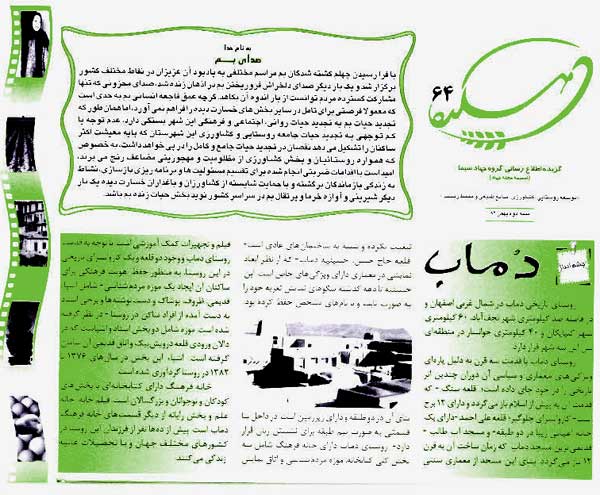 به نام خدا
صدای بـــم
با فرا رسیدن چهلم کشته شدگان بم مراسم مختلفی به یادبود آن عزیزان در نقاط مختلف کشور
برگزار شد و یک بار دیگر صدای دلخراش فروریختن بم بر اذهان زنده شد. صدای محزونی که تنها
مشارکت گسترده مردم توانست از بار اندوه آن بکاهد. گرچه عمق فاجعه انسانی بم به حدی است
که معمولا فرصتی برای تامل در سایر بخش های خسارت دیده را فراهم نمی آورد، اما همان طور که
تجدید حیات بم به تجدید حیات روانی، اجتماعی و فرهنگی این شهر بستگی دارد، عدم توجه یا
کم توجهی به تجدید حیات جامعه روستایی و کشاورزی این شهرستان که پایه معیشت اکثر
ساکنان را تشکیل می دهد نقصان در تجدید حیات جامع و کامل را در پی خواهد داشت، به خصوص
که همواره روستائیان و بخش کشاورزی از مظلومیت و مهجوریتی مضاعف رنج می برند.
امید است با اقدامات ضربتی انجام شده برای تقسیم مسئولیت ها و برنامه ریزی بازسازی، نشاط
به زندگی بازماندگان برگشته و با حمایت شایسته از کشاورزان و باغداران خسارت دیده یک بار
دیگر شیرینی و آوازه خرما و پرتقال بم در سراسر کشور نوید بخش حیات زنده بم باشد.
۶۴
گزیده اطلاع رسانی گروه جهاد سیما
توسعه روستایی، کشاورزی، صنایع تبدیلی و محیط زیست
چشم انداز
دُماب
روستای تاریخی دماب در شمال غربی اصفهان و
در فاصله صد کیلومتری شهر نجف آباد، ۶۰ کیلومتری
شهر گلپایگان و ۴۰ کیلومتری خوانسار در منطقه ای
بین این سه شهر قرار دارد.
روستای دماب با قدمت سه قرن به دلیل پاره ای
ویژگی های معماری و سیاسی آن دوران چندین اثر
تاریخی را در خود جای داده است؛ قلعه سنگی - که
قدمت آن به پیش از اسلام باز می گردد و دارای ۱۲ برج
تبعیت نکرده و نسبت به ساختمان های عادی است-
قلعه حاج حسن، حسینیه دماب -که از نظر ابعاد
نمایشی در معماری دارای ویژگی های خاص است این
حسینیه تا دهه گذشته سکوهای نمایش تعزیه خود را
بنای آن در دو طبقه و دارای زیرزمین است در داخل بنا
بخش کتی کتابخانه، موزه مردم شناسی و اتاق نمایش
فیلم و تجهیزات کمک آموزشی است. با توجه به قدمت
روستای دماب و وجود دو قلعه و یک کاروانسرای تاریخی
در این روستا، به منظور حفظ هویت فرهنگی برای
ساکنان آن ایجاد یک موزه مردم شناسی - شامل اشیاء
قدیمی، ظروف، پوشاک و دست نوشته ها و برخی اسناد
به دست آمده از افراد ساکن در روستا- در نظر گرفته
شده است. موزه شامل دو بخش اسناد و اشیاء است که در
گرفته است. اشیاء این بخش در سال های ۱۳۷۶ تا
۱۳۸۲ در روستا گردآوری شده است.
خانه فرهنگ دارای کتابخانه ای با بخش های
کودکان و نوجوانان و بزرگسالان است. فیلم خانه، خانه
علم و بخش رایانه از دیگر قسمت های خانه فرهنگ
دماب است. بیش از ده ها نفر از فرزندان این روستا در
کشورهای مختلف جهان و با تحصیلات عالیه
زندگی می کنند.